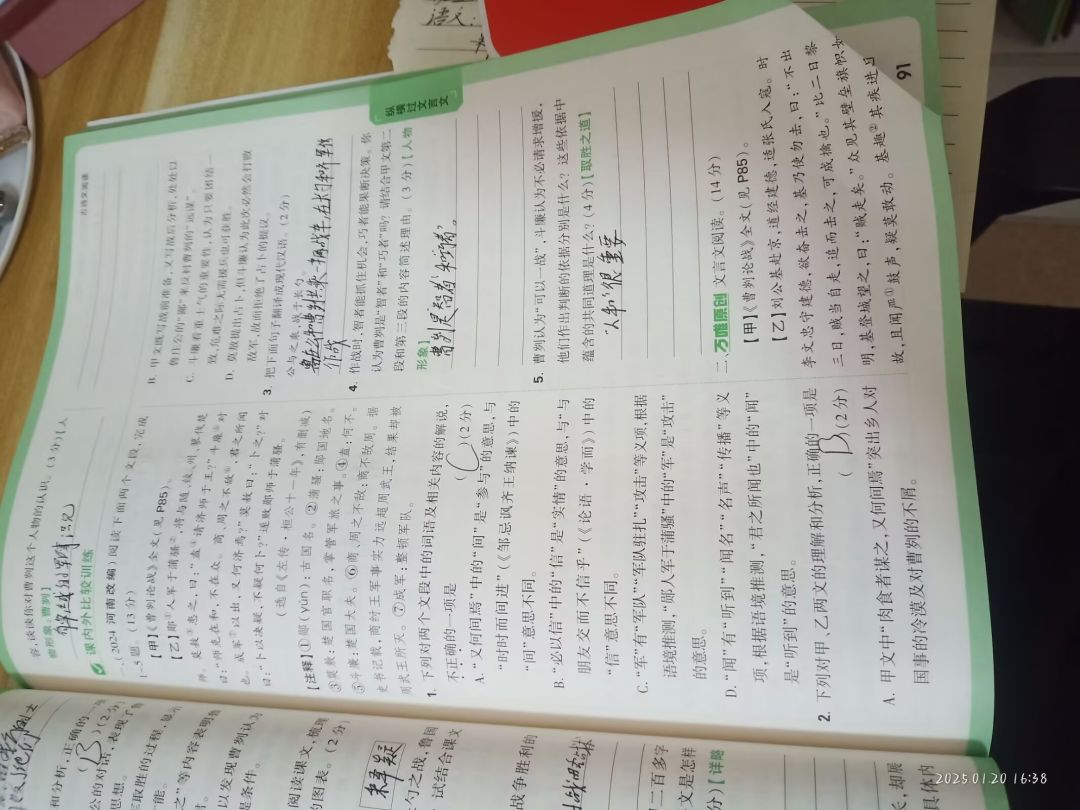 古诗文阅读
纵横过文言文
容,谈谈你对曹刿这个人物的认识。(3分)【人
物形象:曹刿】
课内外比较训练
一、(2024河南改编)阅读下面两个文段,完成
1~5题。(13分)
【甲】《曹刿论战》全文(见P85)。
【乙】郧①人军于蒲骚②,将与随、绞、州、蓼伐楚
师。莫敖③患之,曰:“盍④请济师于王?”斗廉⑤对
曰:“师克在和,不在众。商、周之不敌⑥,君之所闻
也。成军⑦以出,又何济焉?”莫敖曰:“卜之?”对
曰:“卜以决疑,不疑何卜?”遂败郧师于蒲骚。
(选自《左传·桓公十一年》,有删减)
【注释】①郧(yún):古国名。②蒲骚:郧国地名。
③莫敖:楚国官职名,掌管军旅之事。④盍:何不。
⑤斗廉:楚国大夫。⑥商、周之不敌:商不敌周。据
史书记载,商纣王军事实力远超周武王,结果却被
周武王所灭。⑦成军:整顿军队。
1. 下列对两个文段中的词语及相关内容的解说,
不正确的一项是 ( C )(2分)
A. “又何间焉”中的“间”是“参与”的意思,与
“时时而间进”(《邹忌讽齐王纳谏》)中的
“间”意思不同。
B. “必以信”中的“信”是“实情”的意思,与“与
朋友交而不信乎”(《论语·学而》)中的
“信”意思不同。
C. “军”有“军队”“军队驻扎”“攻击”等义项,根据
语境推测,“郧人军于蒲骚”中的“军”是“攻击”
的意思。
D. “闻”有“听到”“闻名”“名声”“传播”等义
项,根据语境推测,“君之所闻也”中的“闻”
是“听到”的意思。
2. 下列对甲、乙两文的理解和分析,正确的一项是
( B )(2分)
A. 甲文中“肉食者谋之,又何间焉”突出乡人对
国事的冷漠及对曹刿的不屑。
B. 甲文既写战前准备,又写战后分析,处处以
鲁庄公的“鄙”来反衬曹刿的“远谋”。
C. 斗廉看重士气的重要性,认为只要团结一
致,危难之际无需援兵也可获胜。
D. 莫敖提出占卜,但斗廉认为此次必然会打败
敌军,故而拒绝了占卜的提议。
3. 把下面句子翻译成现代汉语。(2分)
公与之乘,战于长勺。
作战
4. 作战时,智者能抓住机会,巧者能果断决策。你
认为曹刿是“智者”和“巧者”吗?请结合甲文第二
段和第三段的内容简述理由。(3分)【人物
形象】
曹刿是智者和巧者。
5. 曹刿认为“可以一战”,斗廉认为不必请求增援,
他们作出判断的依据分别是什么?这些依据中
蕴含的共同道理是什么?(4分)【取胜之道】
“人和”很重要
二、万唯原创 文言文阅读。(14分)
【甲】《曹刿论战》全文(见P85)。
【乙】刘公基赴京,道经建德,适张氏入寇。时
李文忠守建德,欲奋击之,基乃使勿击,曰:“不出
三日,贼当自走,追而击之,可成擒也。”比二日黎
明,基登城望之,曰:“贼走矣。”众见其壁垒旗帜如
故,且闻严①鼓声,疑莫敢动。基趣②其疾进
91
和分析,正确的一
( B )(2分)
公的对话,表现了
思想。
家取胜的过程,显示
能。
之”等内容表明鲁
以发现曹刿认为
是条件。
阅读课文,梳理
的图表。(2分)
勺之战,鲁国
试结合课文
战争胜利的
二百多字
文是怎样
分)【详略
2025.01.20 16:38